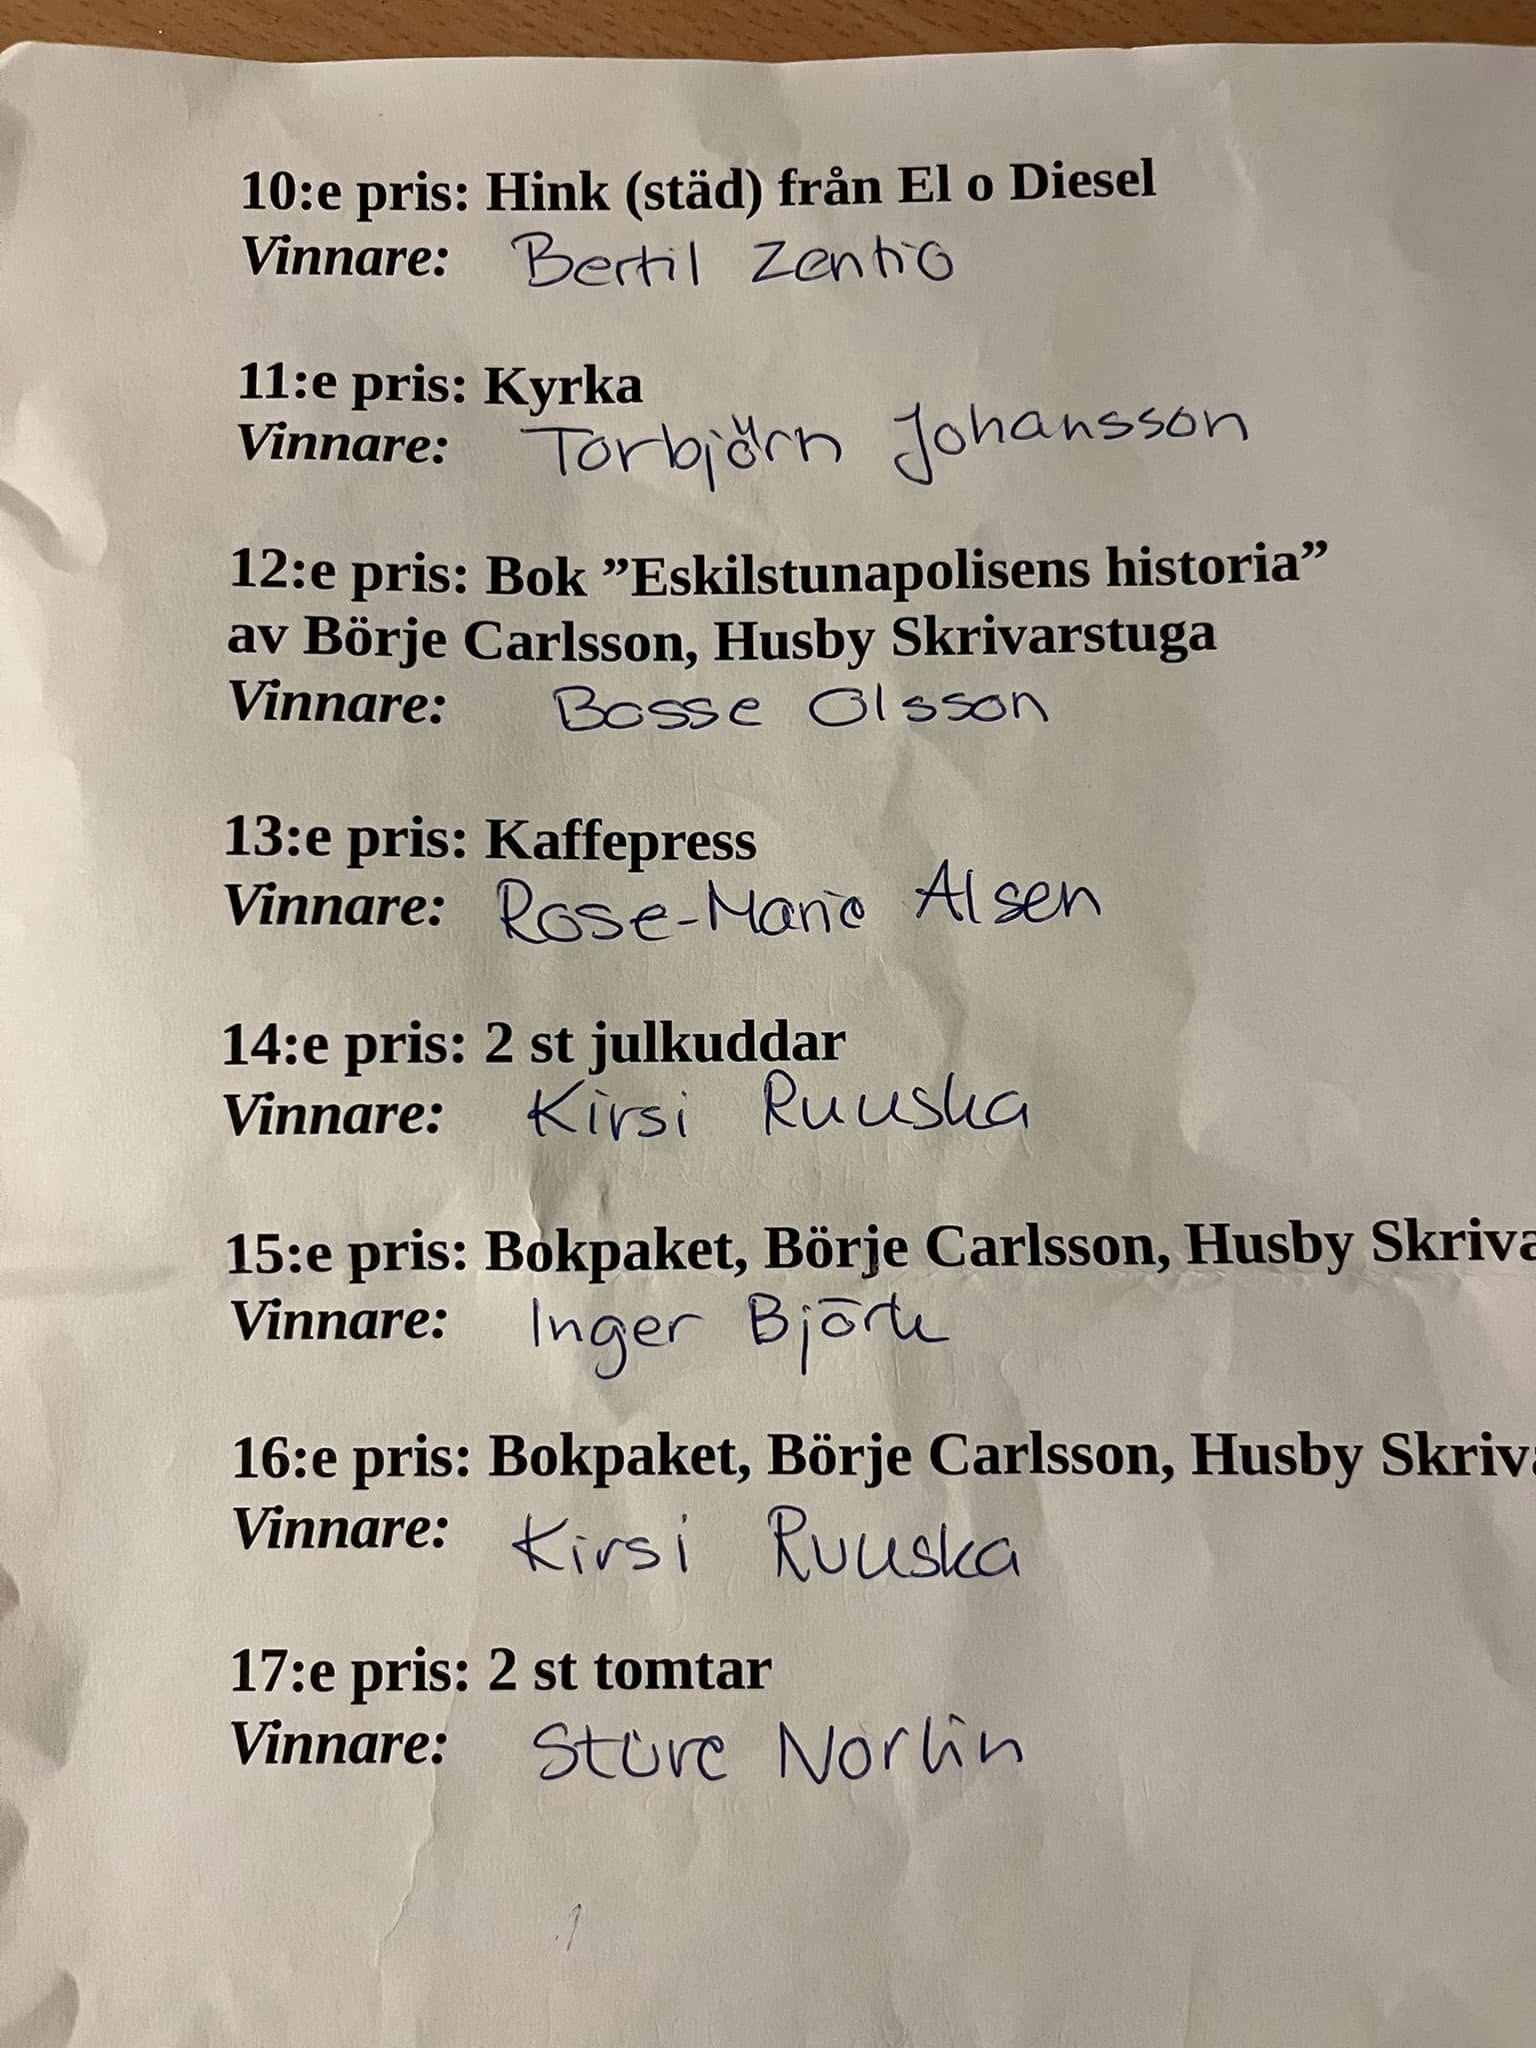 10:e pris: Hink (städ) från El o Diesel
Vinnare: Bertil Zentio
11:e pris: Kyrka
Vinnare: Torbjörn Johansson
12:e pris: Bok ”Eskilstunapolisens historia”
av Börje Carlsson, Husby Skrivarstuga
Vinnare: Bosse Olsson
13:e pris: Kaffepress
Vinnare: Rose-Marie Alsen
14:e pris: 2 st julkuddar
Vinnare: Kirsi Ruuska
15:e pris: Bokpaket, Börje Carlsson, Husby Skriva
Vinnare: Inger Björk
16:e pris: Bokpaket, Börje Carlsson, Husby Skriva
Vinnare: Kirsi Ruuska
17:e pris: 2 st tomtar
Vinnare: Sture Norlin